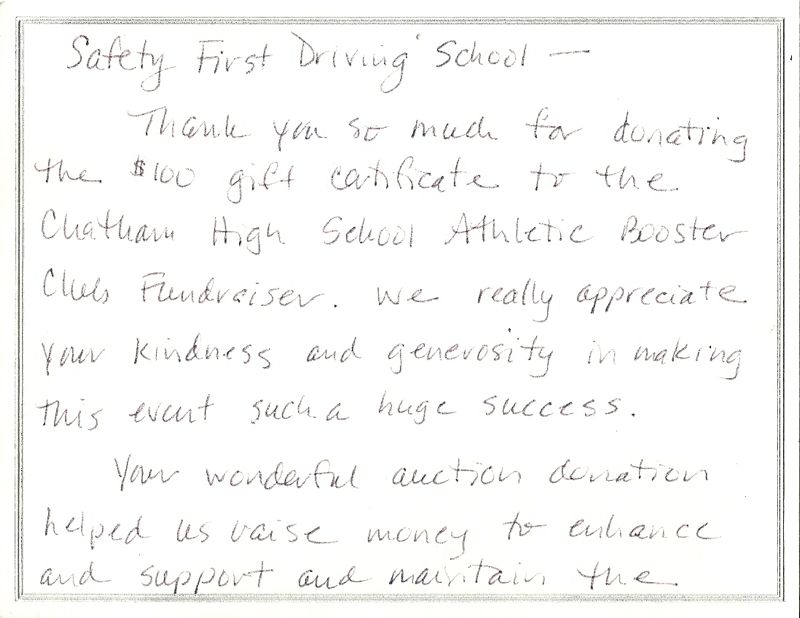 Safety First Driving School —
Thank you so much for donating
the $100 gift certificate to the
Chatham High School Athletic Booster
Club Fundraiser. We really appreciate
your kindness and generosity in making
this event such a huge success.
Your wonderful auction donation
helped us raise money to enhance
and support and maintain the